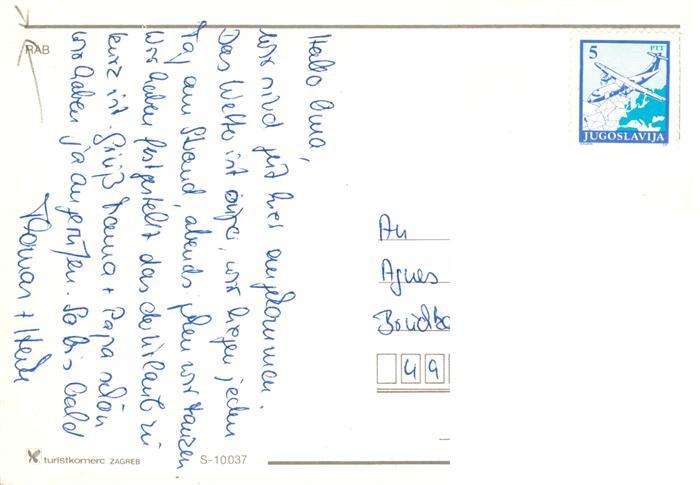 RAB
5 PTT
JUGOSLAVIJA
Hallo Oma,
wir sind jetzt hier angekommen.
Das Wetter ist wir liegen jeden
Tag am Strand, abends gehen wir tanzen
Wir haben festgestellt das der Urlaub zu
kurz ist. Grüß Mama + Papa schön
wir haben ja angerufen. So bis bald
Thomas +
An
Agnes
49
turistkomerc ZAGREB S-10037